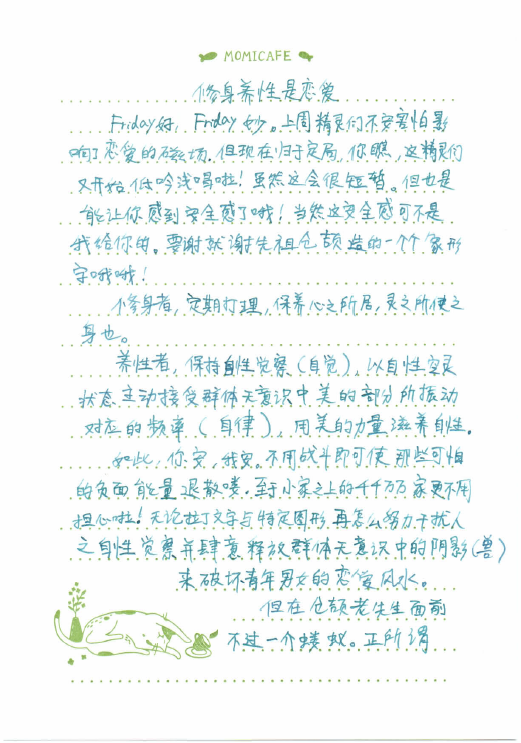 MOMICAFE
修身养性是恋爱
Friday好, Friday 妙。上周精灵们不要害怕影
响了恋爱的磁场.但现在归于定局,你瞧,这精灵们
又开始低吟浅唱啦!虽然这会很短暂。但也是
能让你感到安全感了哦!当然这安全感可不是
我给你的。要谢就谢先祖仓颉造的一个个象形
字哦哦!
修身者,定期打理,保养心之所居,灵之所使之
身也。
养性者,保持自性觉察(自觉),以自性空灵
状态主动接受群体无意识中美的部分所振动
对应的频率(自律),用美的力量滋养自性.
如此,你安,我安。不用战斗即可使那些可怕
的负面能量退散喽.至于小家之上的千千万万家更不用
担心啦!无论拉丁文字与特定图形再怎么努力干扰人
之自性觉察并肆意释放群体无意识中的阴影(兽)
来破坏青年男女的恋爱风水。
但在仓颉老先生面前
不过一个蝼蚁。正所谓